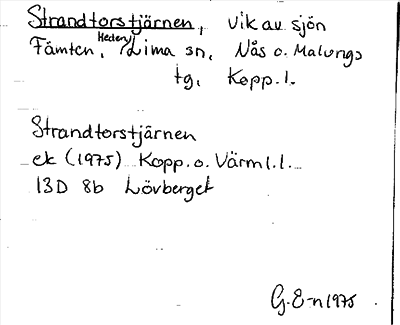 Strandtorstjärnen, vik av sjön
Fämten, Heden, Lima sn, Nås o. Malungs
tg, Kopp. l.
Strandtorstjärnen
ek (1975) Kopp. o. Värml. l.
13D 8b Lövberget
G. E-n 1975